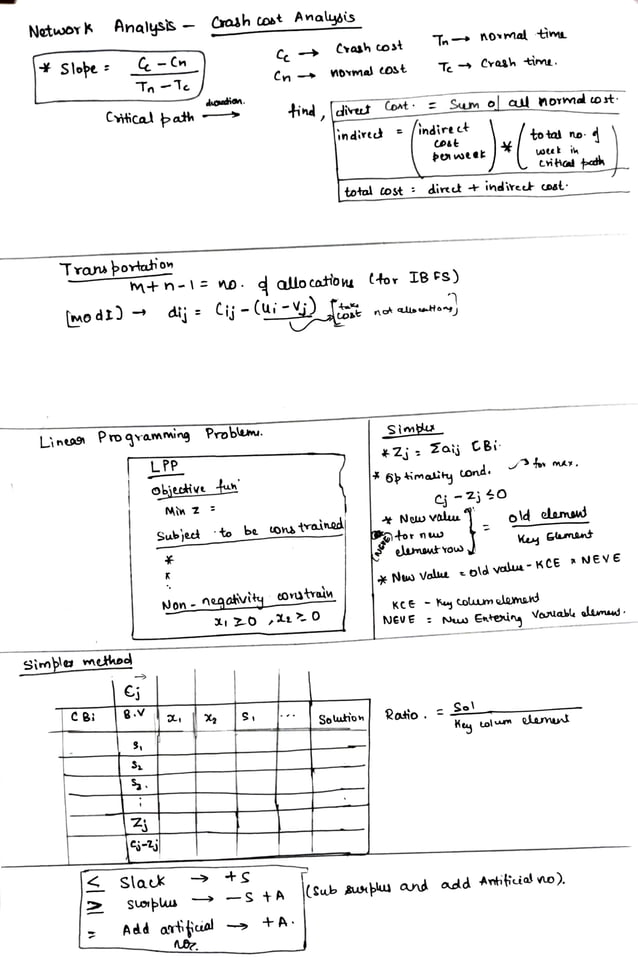 Network Analysis - Crash cost Analysis
* Slope = Cc - Cn / Tn - Tc
Cc → Crash cost Tn → normal time
Cn → normal cost Tc → Crash time.
Critical path → duration.
find, direct Cost. = Sum of all normal cost.
indirect = (indirect cost per week) * (total no. of week in critical path)
total cost = direct + indirect cost.
Transportation
m+n-1 = no. of allocations (for IBFS)
[modI] → dij = Cij - (ui - vj) [take cost not allocations]
Linear Programming Problem.
LPP
Objective fun'
Min Z =
Subject to be constrained
*
*
:
Non-negativity constrain
x1 ≥ 0, x2 ≥ 0
Simplex
* Zj = Σaij CBi.
* Optimality cond. → for max.
Cj - Zj ≤ 0
* New value (NEVE) for new element row } = old element / Key Element
* New Value = old value - KCE * NEVE
KCE - Key colum element
NEVE = New Entering Variable element.
Simplex method
Cj →
CBi B.V x1 x2 S1 ... Solution
S1
S2
S2.
:
Zj
Cj-Zj
Ratio. = Sol / Key colum element
≤ Slack → +S
≥ surplus → -S +A (Sub surplus and add Artificial no).
= Add artificial no. → +A.